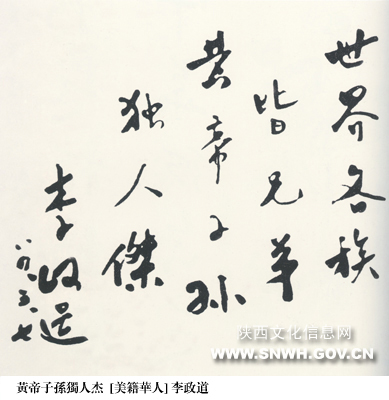 世界各族
皆兄弟
黄帝子孙
独人傑
李政道
八九、五、七
陕西文化信息网
WWW.SNWH.GOV.CN
黃帝子孫獨人杰 [美籍華人] 李政道